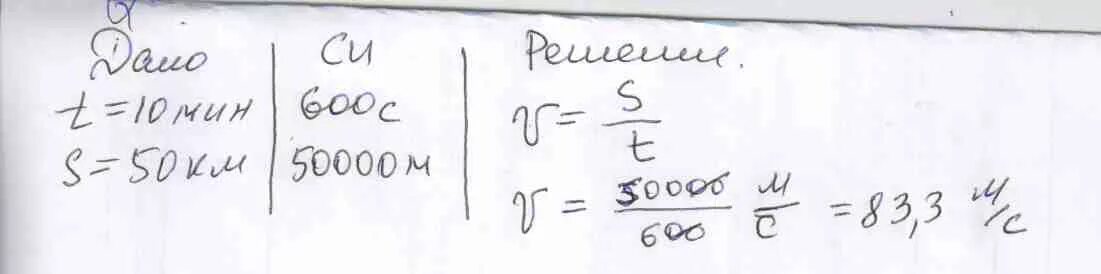 Дано | СИ | Решение.
t = 10 мин | 600 с
S = 50 км | 50000 м
v = S/t
v = 50000/600 м/с = 83,3 м/с